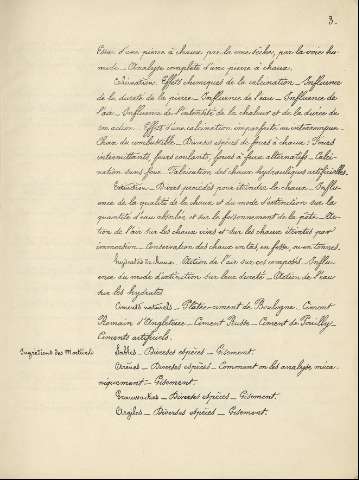 3.
Essai d'une pierre à chaux par la voie sèche, par la voie hu-
mide _ Analyse complète d'une pierre à chaux.
Calcination. Effets chimiques de la calcination _ Influence
de la dureté de la pierre _ Influence de l'eau _ Influence de
l'air _ Influence de l'intensité de la chaleur et de la durée de
son action. Effet d'une calcination imparfaite ou
Choix du combustible _ Diverses espèces de fours à chaux : Fours
intermittents, fours coulants, fours à feux alternatifs _ Calci-
nation sans four _ Fabrication des chaux hydrauliques artificielles.
Extinction _ Divers procédés pour éteindre la chaux _ Influ-
ence de la qualité de la chaux et du mode d'extinction sur la
quantité d'eau absorbée et sur le foisonnement de la pâte _ Ac-
tion de l'air sur les chaux vives et sur les chaux éteintes par
immersion _ Conservation des chaux en tas, en fosse, ou en tonnes.
Hydrates de chaux. Action de l'air sur ces composés _ Influ-
ence du mode d'extinction sur leur dureté _ Action de l'eau
sur les hydrates.
Ciments naturels _ Plâtre-ciment de Boulogne. Ciment
Romain d'Angleterre _ Ciment Russe _ Ciment de Pouilly _
Ciments artificiels.
Ingrédiens des Mortiers Sables _ Diverses espèces _ Gisement.
Arènes _ Diverses espèces _ Comment on les analyse méca-
niquement _ Gisement.
Grauwackes _ Diverses espèces _ Gisement.
Argiles _ Diverses espèces _ Gisement.